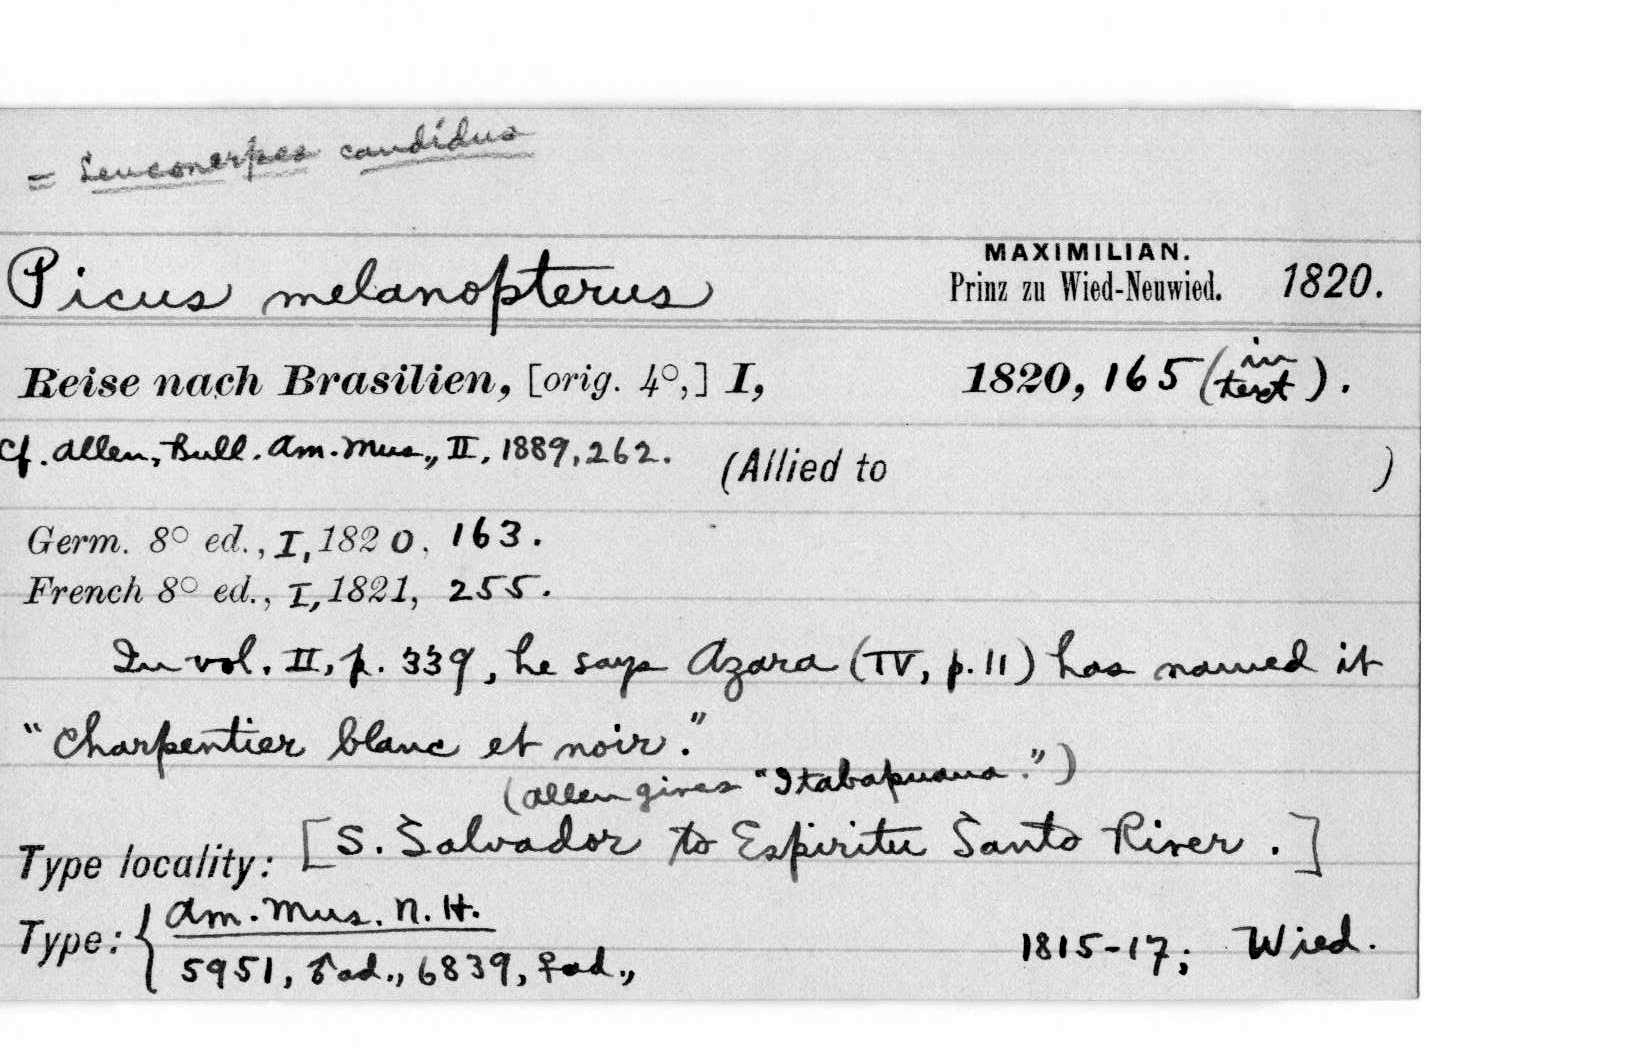 = Leuconerpes candidus
Picus melanopterus MAXIMILIAN. Prinz zu Wied-Neuwied. 1820.
Reise nach Brasilien, [orig. 4°,] I, 1820, 165 (in text).
Cf. Allen, Bull. Am. Mus., II, 1889, 262. (Allied to )
Germ. 8° ed., I, 1820, 163.
French 8° ed., I, 1821, 255.
In vol. II, p. 339, he says Azara (IV, p. 11) has named it
"Charpentier blanc et noir."
(Allen gives "Itabapuana.")
Type locality: [S. Salvador to Espiritu Santo River.]
Type: { Am. Mus. N. H.
5951, ♂ ad., 6839, ♀ ad., 1815-17; Wied.